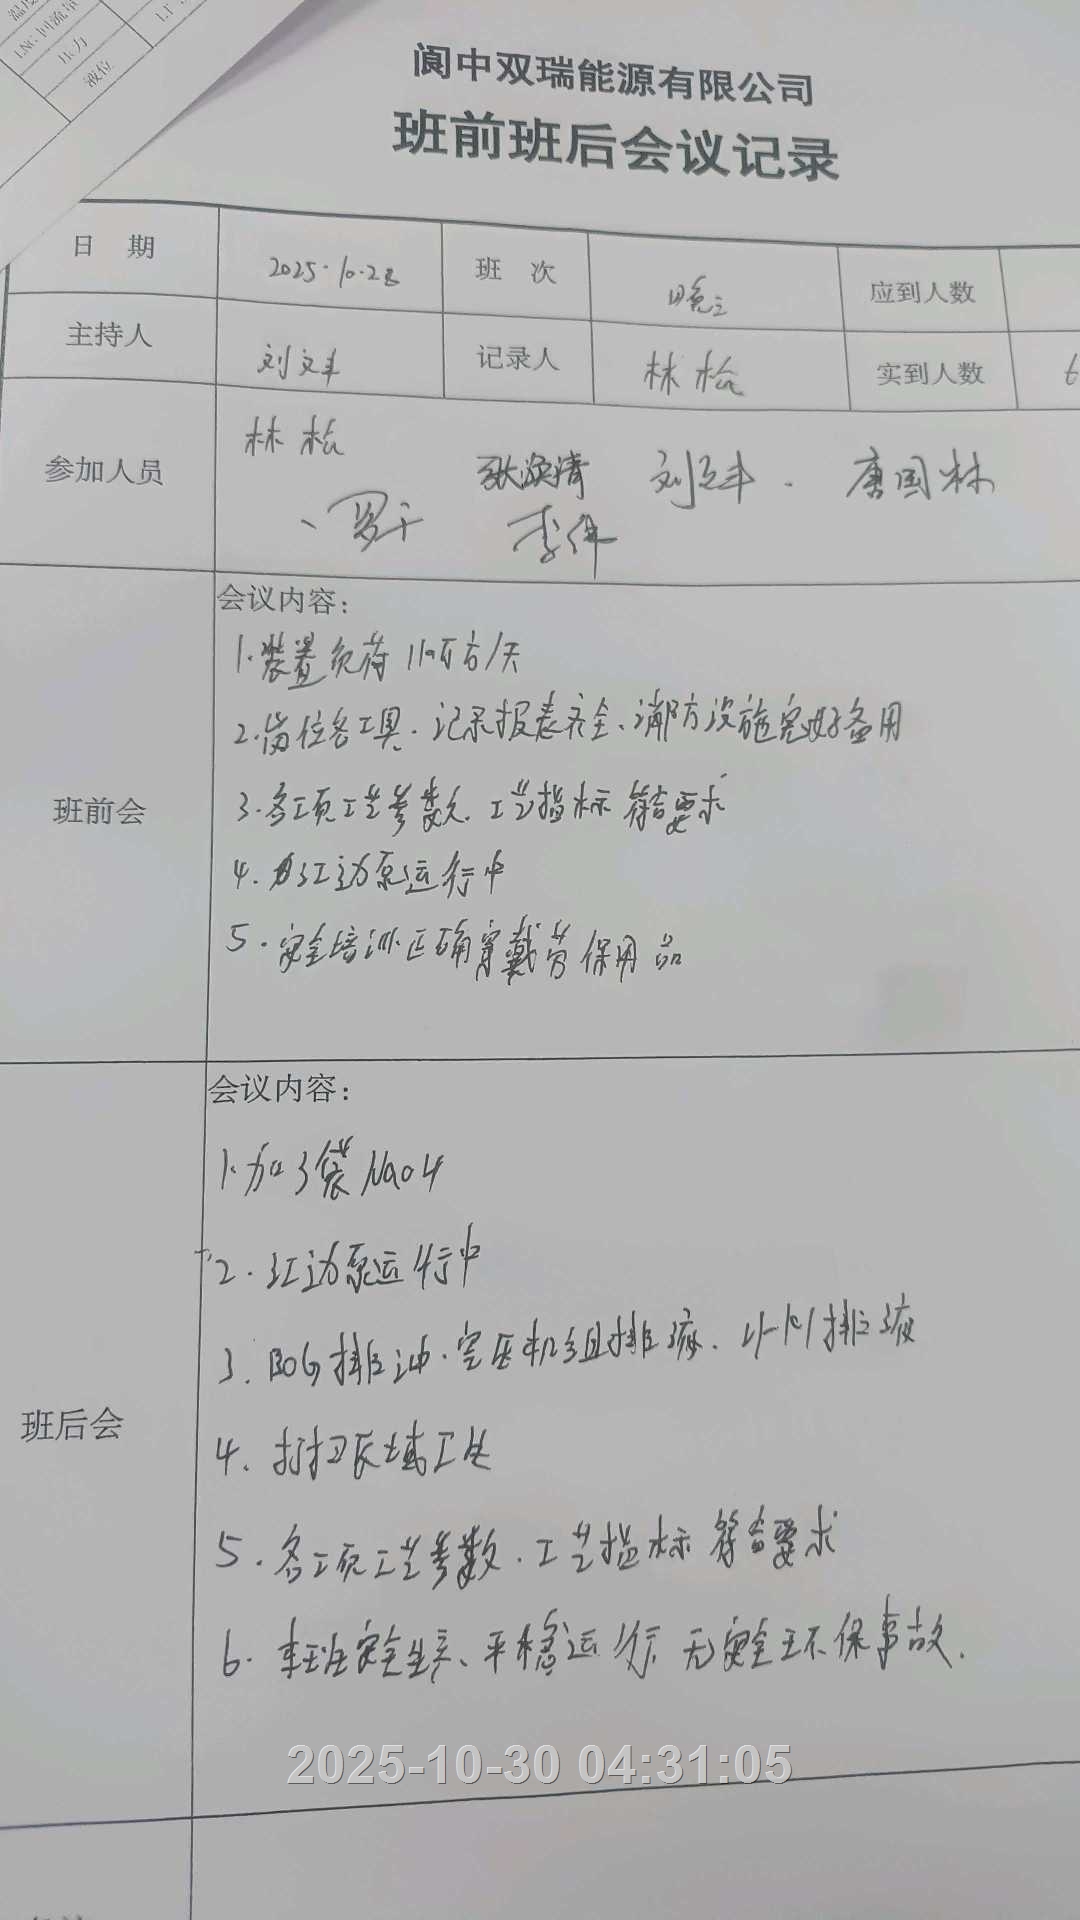 温度
LNG回流量
压力
液位
阆中双瑞能源有限公司
班前班后会议记录
日 期 2025.10.28 班 次 晚 应到人数
主持人 刘文丰 记录人 林松 实到人数 6
参加人员 林松 张焕清 刘文丰. 唐国林
、罗千 李伟
班前会 会议内容:
1.装置负荷110万方/天
2.岗位各工具.记录报表齐全、消防设施完好备用
3.各项工艺参数.工艺指标符合要求
4.屏动泵运行中
5.安全培训正确穿戴劳保用品
班后会 会议内容:
1.加3袋NaOH
2.泵运行中
3.BOG排油.空压机组排液.排液
4.打扫区域卫生
5.各项工艺参数.工艺指标符合要求
6.本班安全生产、平稳运行,无安全环保事故.
2025-10-30 04:31:05